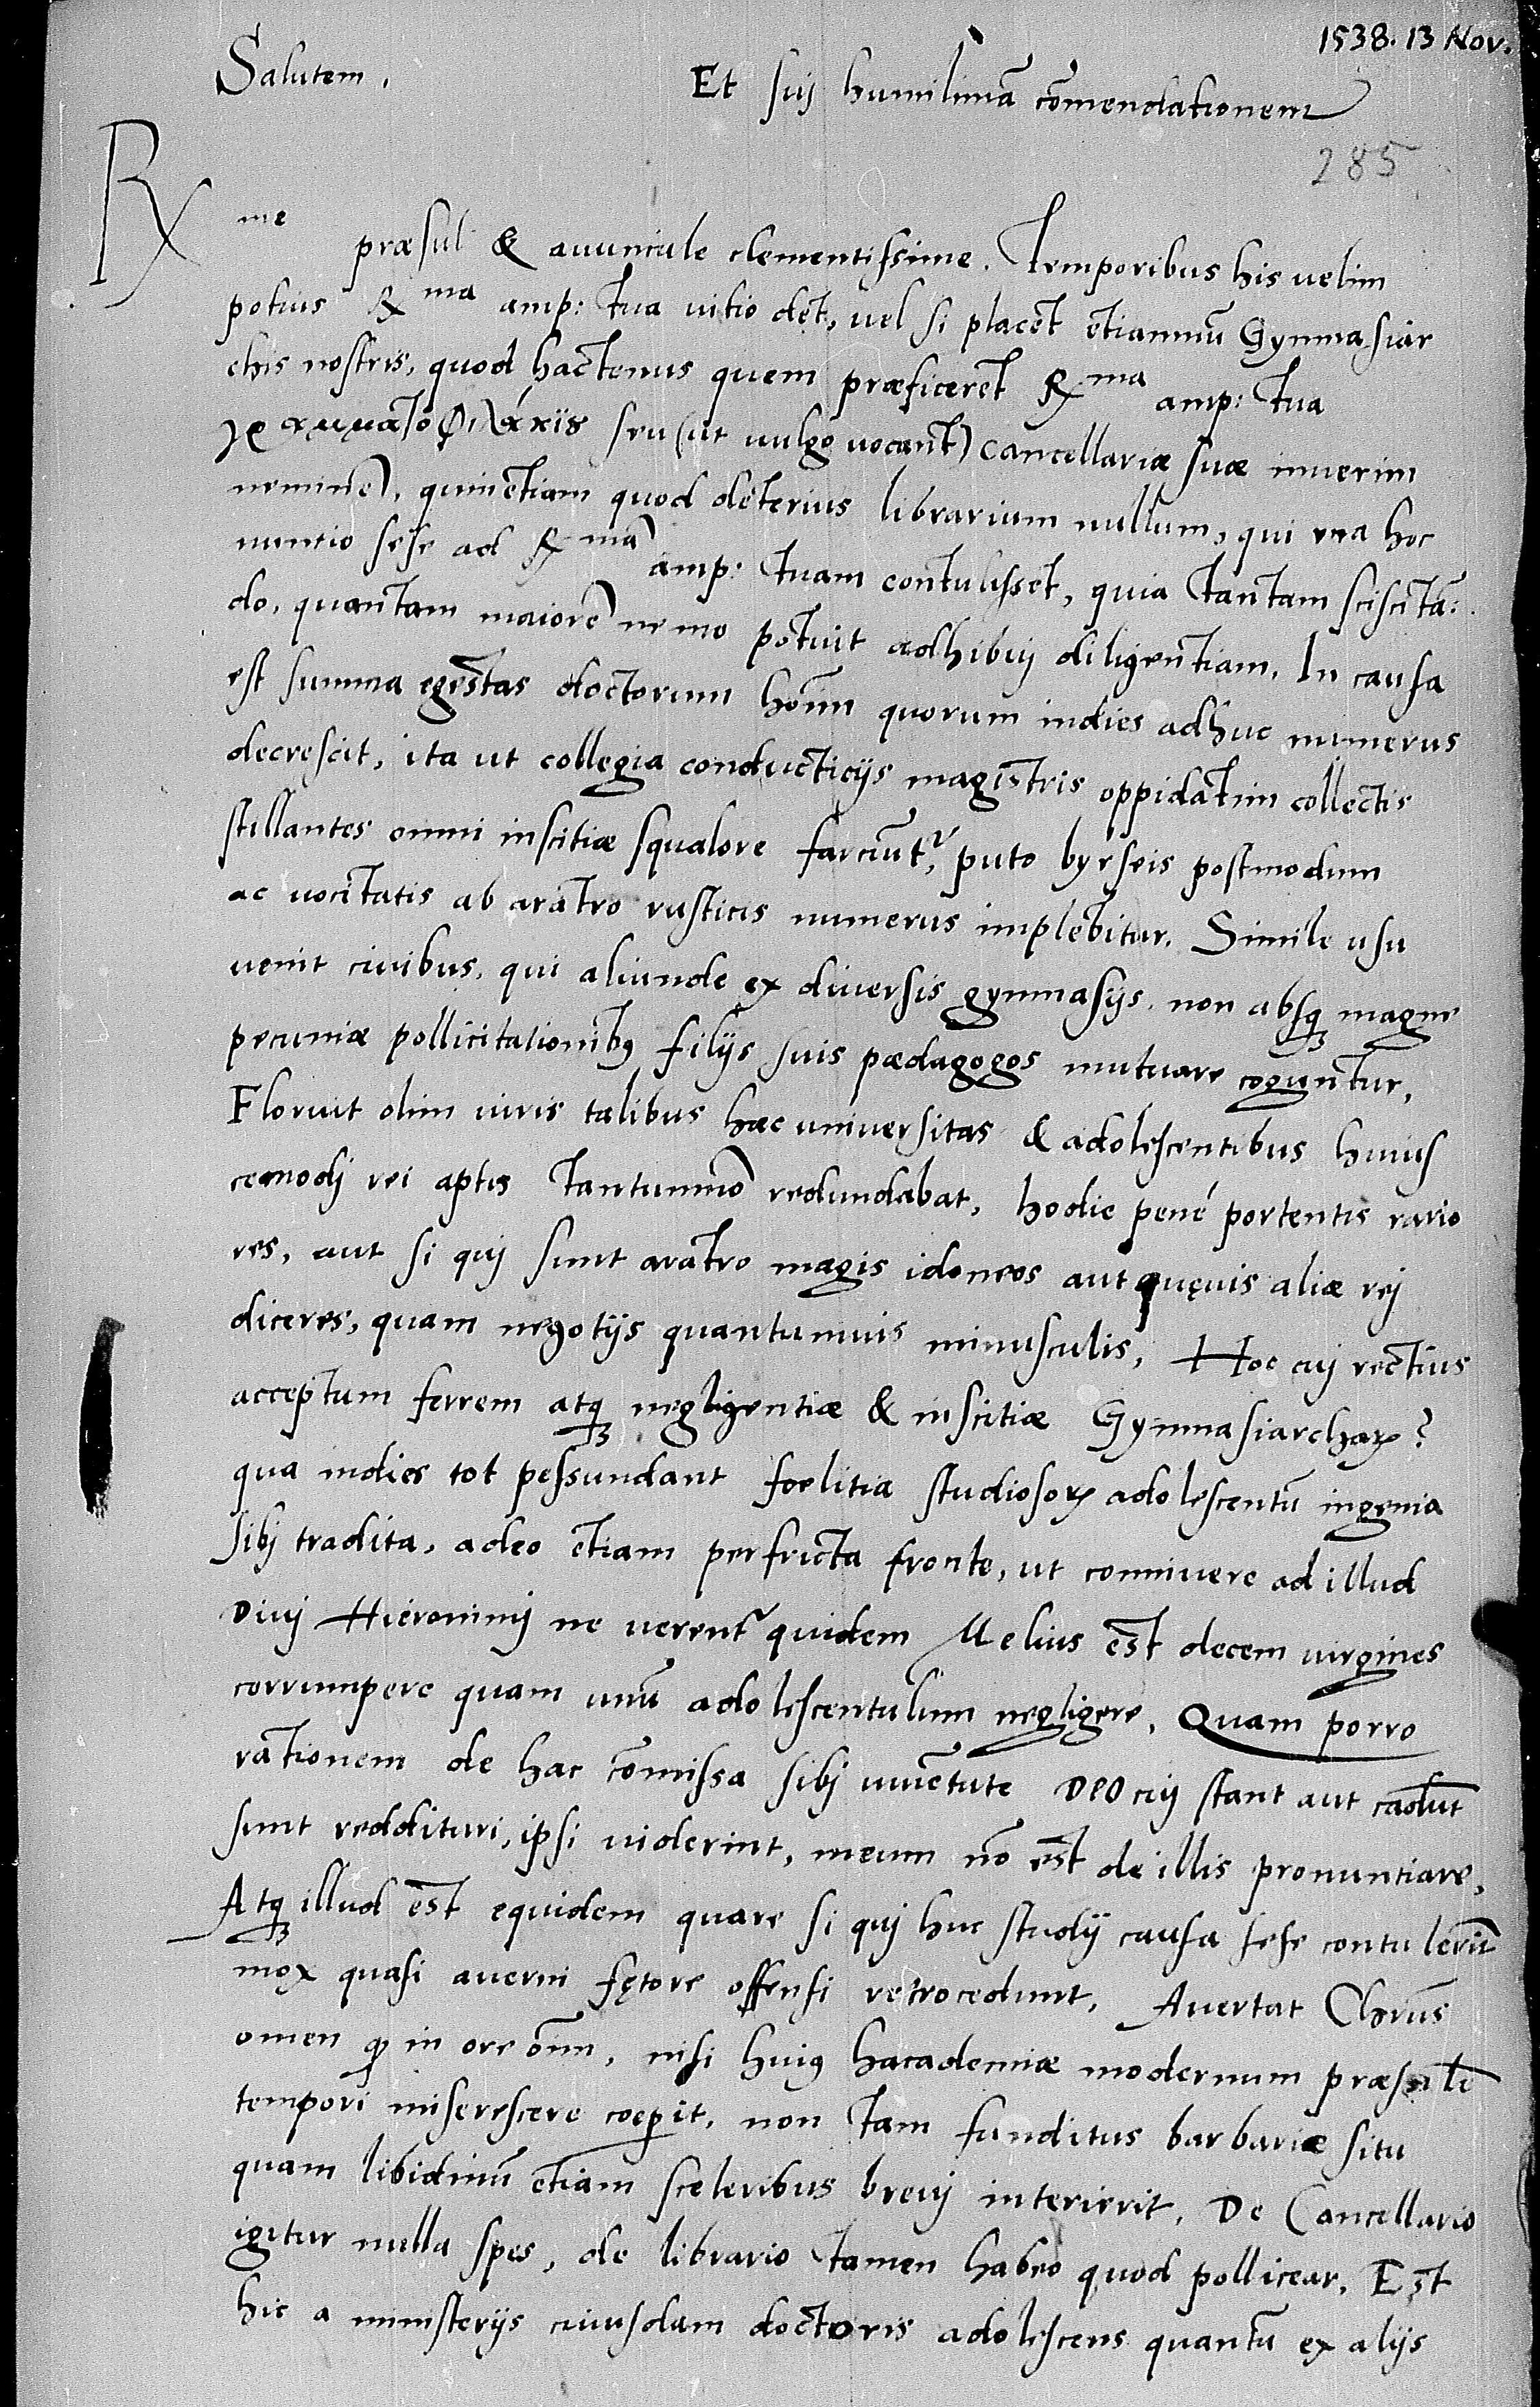 1538. 13 Nov.
Salutem,
Et suj humilimā cōmendationem
285
R me præsul & auuncule clementissime. Temporibus his uelim
potius R ma amp: tua uitio det, uel si placet etiamnū Gymnasiar
chis nostris, quod hactenus quem præficeret R ma amp: tua
seu (ut uulgo uocant) cancellariæ suæ inuerim
neminē, quinetiam quod deterius librarium nullum, qui una hoc
nuntio sese ad R mā amp: tuam contulisset, quia tantam sciscitā:
do, quantam maiorē nemo potuit adhibuj diligentiam. In causa
est summa egestas doctorum hoīm quorum indies adhuc numerus
decrescit, ita ut collegia conducticijs magistris oppidatim collectis
stillantes omni inscitiæ squalore farciūt', puto byrseis postmodum
ac uocitatis ab aratro rusticis numerus implebitur. Simile usu
uenit ciuibus, qui aliunde ex diuersis gymnasijs non absq magne
pecuniæ pollicitationibꝫ filijs suis pædagogos mutuare coguntur,
Floruit olim uiris talibus hæc uniuersitas & adolescentibus huius
cemodj rei aptis tantummō redundabat, hodie pené portentis rario
res, aut si quj sunt aratro magis idoneos aut quęuis aliæ rej
diceres, quam negotijs quantumuis minusculis, Hoc cuj rectius
acceptum ferrem atqꝫ negligentiæ & inscitiæ Gymnasiarchaꝝ?
qua indies tot pessundant foelitia studiosoꝝ adolescentū ingenia
sibj tradita, adeo etiam perfricta fronte, ut conniuere ad illud
Diuj Hieronimj ne uerent' quidem Melius est decem uirgines
corrumpere quam unū adolescentulum negligere. Quam porro
rationem de hac cōmissa sibj iuuētute DEO cuj stant aut cadūt
sunt reddituri, ipsi uiderint, meum nō est de illis pronuntiare,
Atqꝫ illud est equidem quare si quj huc studij causa sese contulerīt
mox quasi auerni fętore offensi retrocedunt. Auertat Chrūs
omen ꝙ in ore oīm, nisi huiꝰ hacademiæ modernum præsulē
tempori miserescere coeperit, non tam funditus barbariæ situ
quam libidinū etiam sceleribus breuj interierit. De Cancellario
igitur nulla spes, de librario tamen habeo quod pollicear. Est
hic a ministerijs cuiusdam doctoris adolescens quantū ex alijs